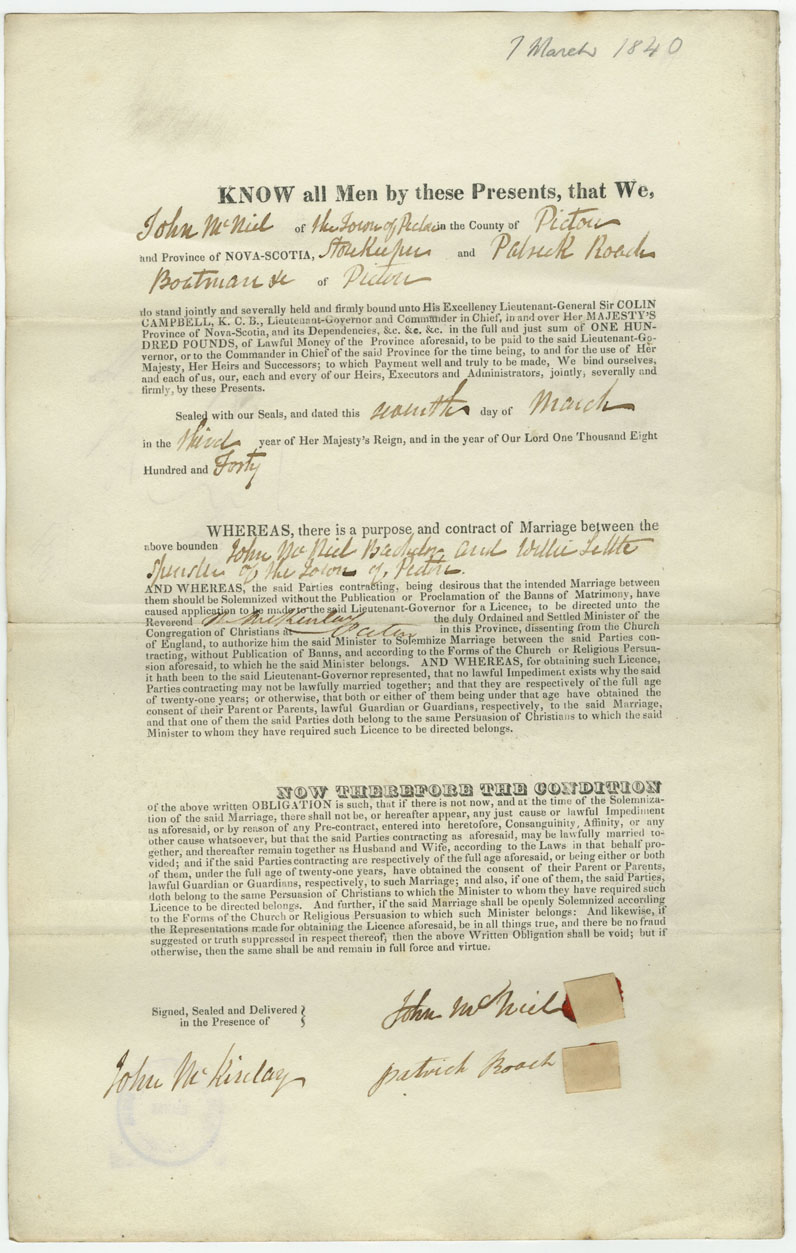 7 March 1840
KNOW all Men by these Presents, that We,
John McNiel of the Town of Pictou in the County of Pictou
and Province of NOVA-SCOTIA, Storekeeper and Patrick Roach
Boatman &c of Pictou
do stand jointly and severally held and firmly bound unto His Excellency Lieutenant-General Sir COLIN
CAMPBELL, K. C. B., Lieutenant-Governor and Commander in Chief, in and over Her MAJESTY'S
Province of Nova-Scotia, and its Dependencies, &c. &c. &c. in the full and just sum of ONE HUN-
DRED POUNDS, of Lawful Money of the Province aforesaid, to be paid to the said Lieutenant-Go-
vernor, or to the Commander in Chief of the said Province for the time being, to and for the use of Her
Majesty, Her Heirs and Successors; to which Payment well and truly to be made, We bind ourselves,
and each of us, our, each and every of our Heirs, Executors and Administrators, jointly, severally and
firmly, by these Presents.
Sealed with our Seals, and dated this seventh day of March
in the third year of Her Majesty's Reign, and in the year of Our Lord One Thousand Eight
Hundred and Forty
WHEREAS, there is a purpose and contract of Marriage between the
above bounden John McNiel Bachelor and Willie Little
Spinster of the Town of Pictou.
AND WHEREAS, the said Parties contracting, being desirous that the intended Marriage between
them should be Solemnized without the Publication or Proclamation of the Banns of Matrimony, have
caused application to be made to the said Lieutenant-Governor for a Licence, to be directed unto the
Reverend McKinlay the duly Ordained and Settled Minister of the
Congregation of Christians at Pictou in this Province, dissenting from the Church
of England, to authorize him the said Minister to Solemnize Marriage between the said Parties con-
tracting, without Publication of Banns, and according to the Forms of the Church or Religious Persua-
sion aforesaid, to which he the said Minister belongs. AND WHEREAS, for obtaining such Licence,
it hath been to the said Lieutenant-Governor represented, that no lawful Impediment exists why the said
Parties contracting may not be lawfully married together; and that they are respectively of the full age
of twenty-one years; or otherwise, that both or either of them being under that age have obtained the
consent of their Parent or Parents, lawful Guardian or Guardians, respectively, to the said Marriage,
and that one of them the said Parties doth belong to the same Persuasion of Christians to which the said
Minister to whom they have required such Licence to be directed belongs.
NOW THEREFORE THE CONDITION
of the above written OBLIGATION is such, that if there is not now, and at the time of the Solemniza-
tion of the said Marriage, there shall not be, or hereafter appear, any just cause or lawful Impediment
as aforesaid, or by reason of any Pre-contract, entered into heretofore, Consanguinity, Affinity, or any
other cause whatsoever, but that the said Parties contracting as aforesaid, may be lawfully married to-
gether, and thereafter remain together as Husband and Wife, according to the Laws in that behalf pro-
vided; and if the said Parties contracting are respectively of the full age aforesaid, or being either or both
of them, under the full age of twenty-one years, have obtained the consent of their Parent or Parents,
lawful Guardian or Guardians, respectively, to such Marriage; and also, if one of them, the said Parties,
doth belong to the same Persuasion of Christians to which the Minister to whom they have required such
Licence to be directed belongs. And further, if the said Marriage shall be openly Solemnized according
to the Forms of the Church or Religious Persuasion to which such Minister belongs: And likewise, if
the Representations made for obtaining the Licence aforesaid, be in all things true, and there be no fraud
suggested or truth suppressed in respect thereof; then the above Written Obligation shall be void; but if
otherwise, then the same shall be and remain in full force and virtue.
Signed, Sealed and Delivered
in the Presence of
John McNiel
John McKinlay
patrick Roach